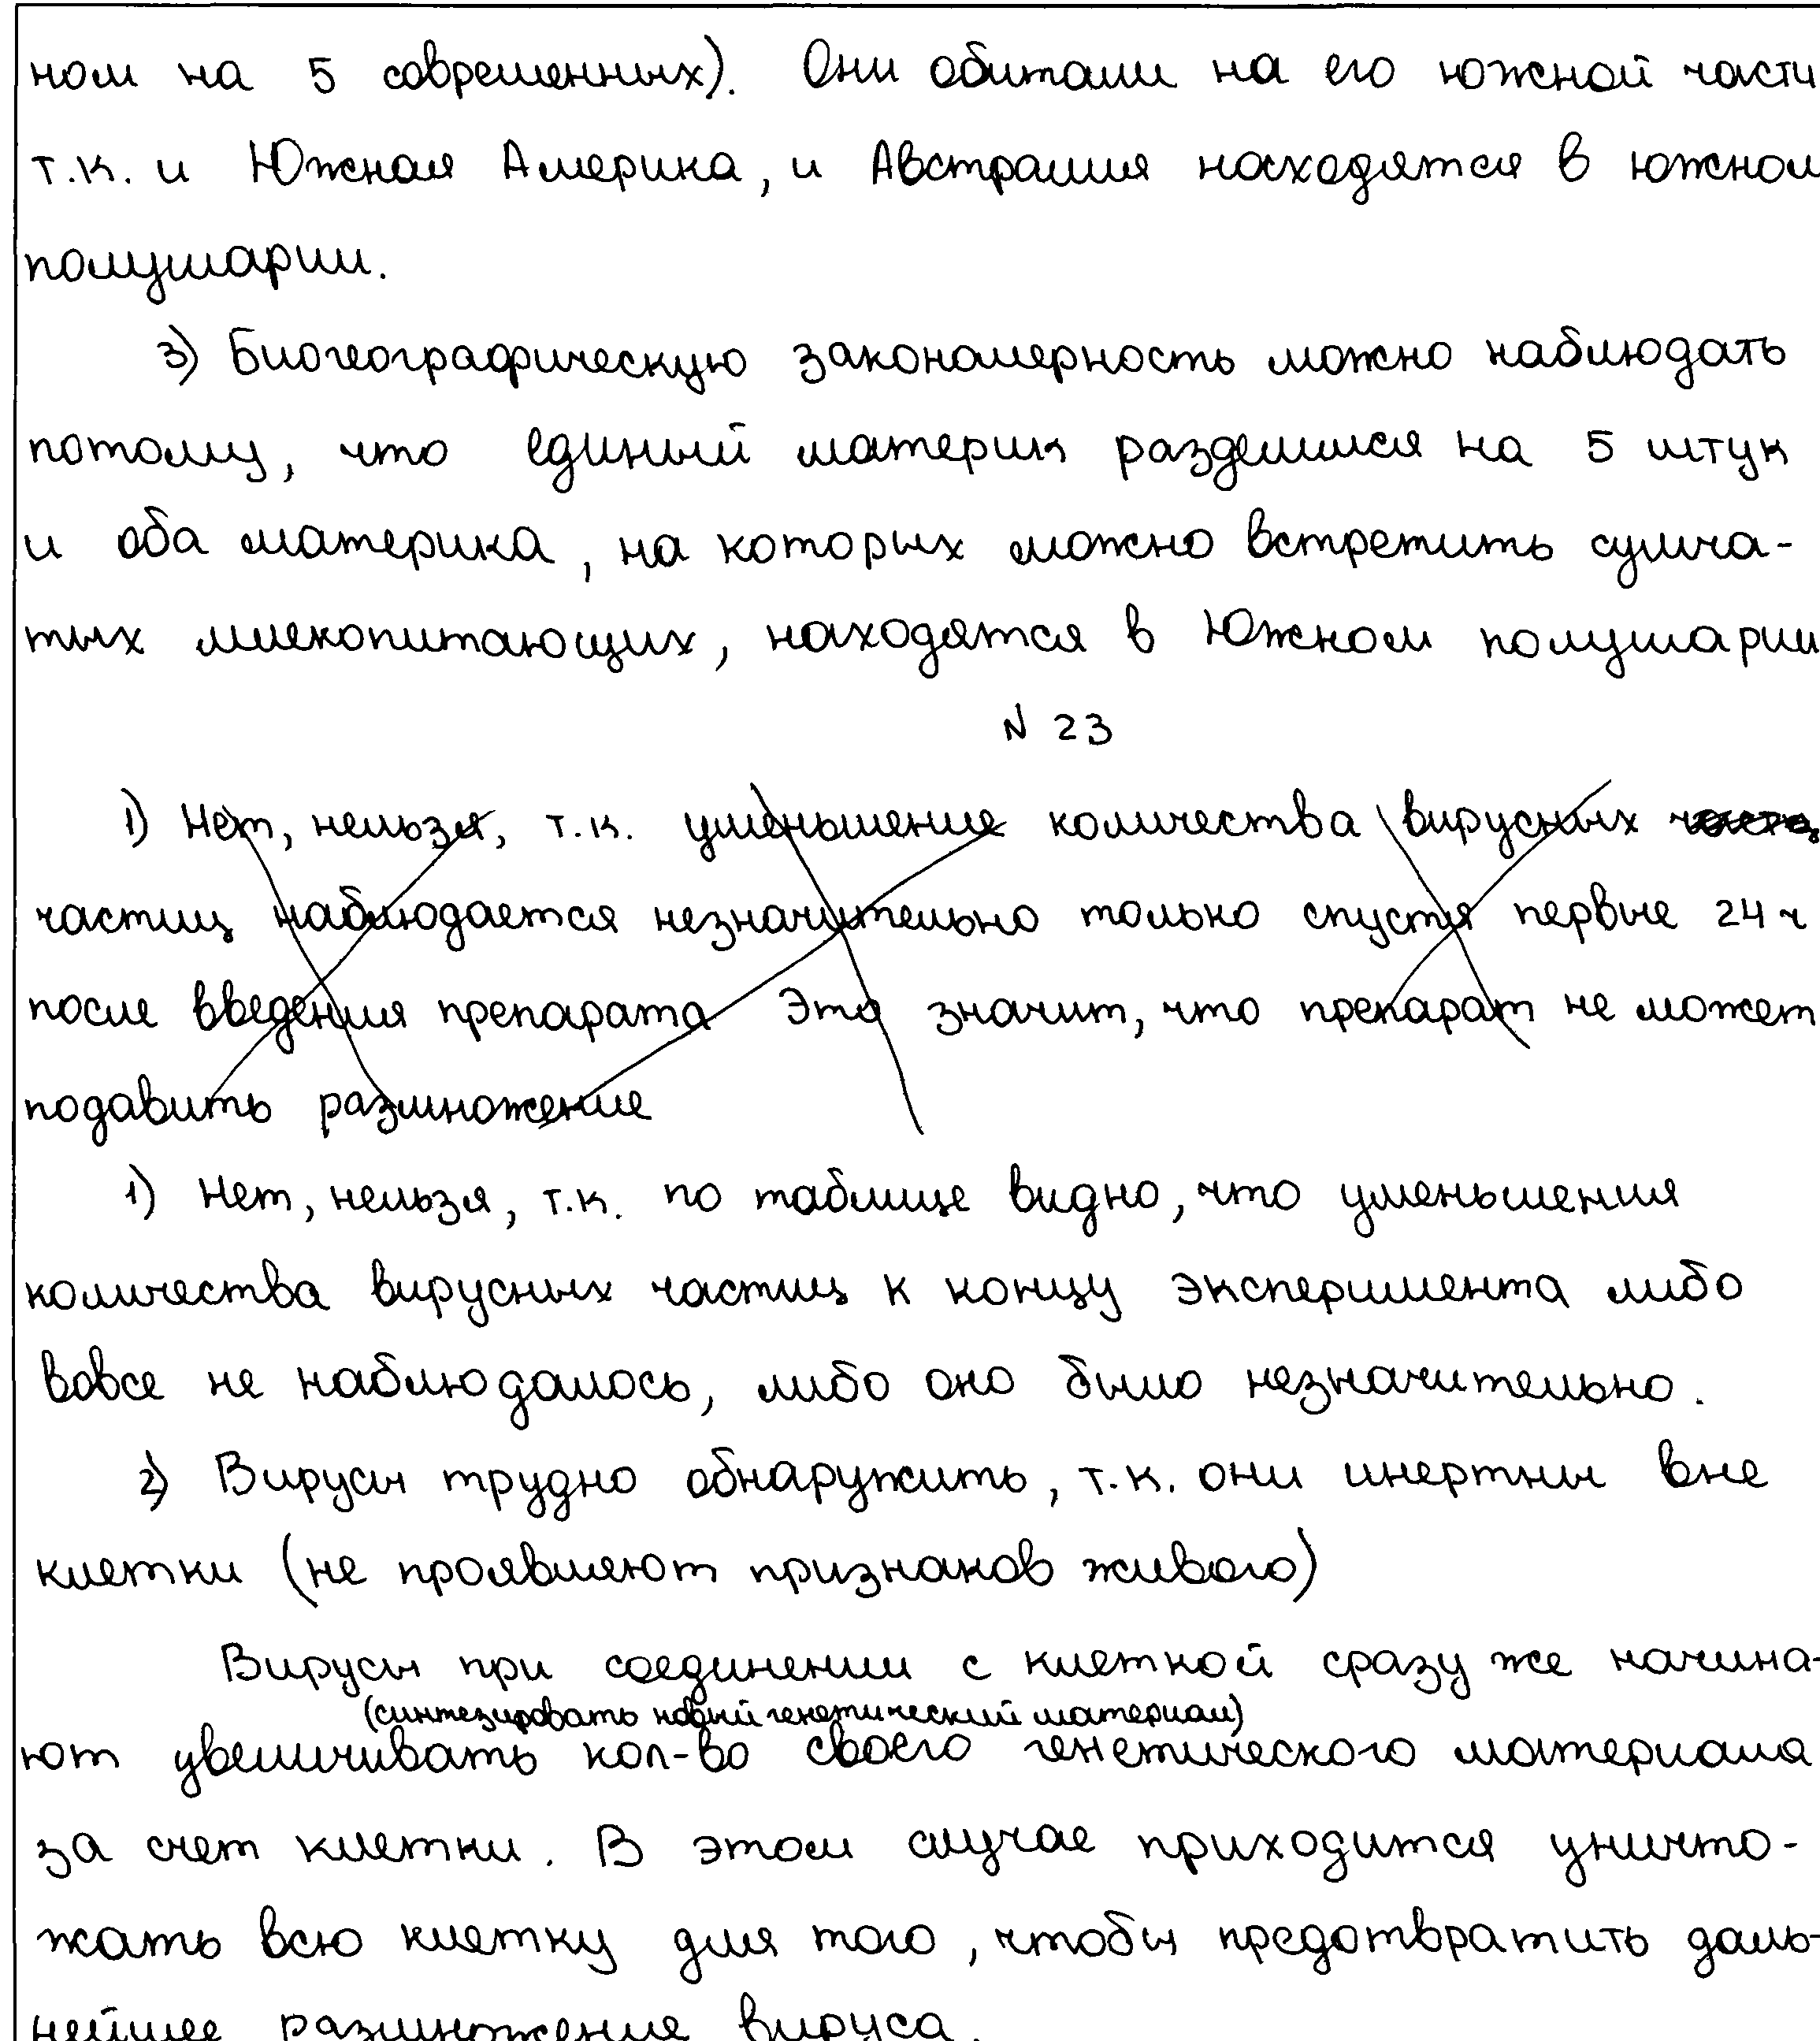 ном на 5 современных). Они обитали на его южной части
т.к. и Южная Америка, и Австралия находятся в южном
полушарии.
3) Биогеографическую закономерность можно наблюдать
потому, что единый материк разделился на 5 штук
и оба материка, на которых можно встретить сумча-
тых млекопитающих, находятся в Южном полушарии
N 23
1) Нет, нельзя, т.к. уменьшение количества вирусных
частиц наблюдается незначительно только спустя первые 24 ч
после введения препарата Это значит, что препарат не может
подавить размножение
1) Нет, нельзя, т.к. по таблице видно, что уменьшения
количества вирусных частиц к концу эксперимента либо
вовсе не наблюдалось, либо оно было незначительно.
2) Вирусы трудно обнаружить, т.к. они инертны вне
клетки (не проявляют признаков живого)
Вирусы при соединении с клеткой сразу же начина-
(синтезировать новый генетический материал)
ют увеличивать кол-во своего генетического материала
за счет клетки. В этом случае приходится уничто-
жать всю клетку для того, чтобы предотвратить даль-
нейшее размножение вируса.